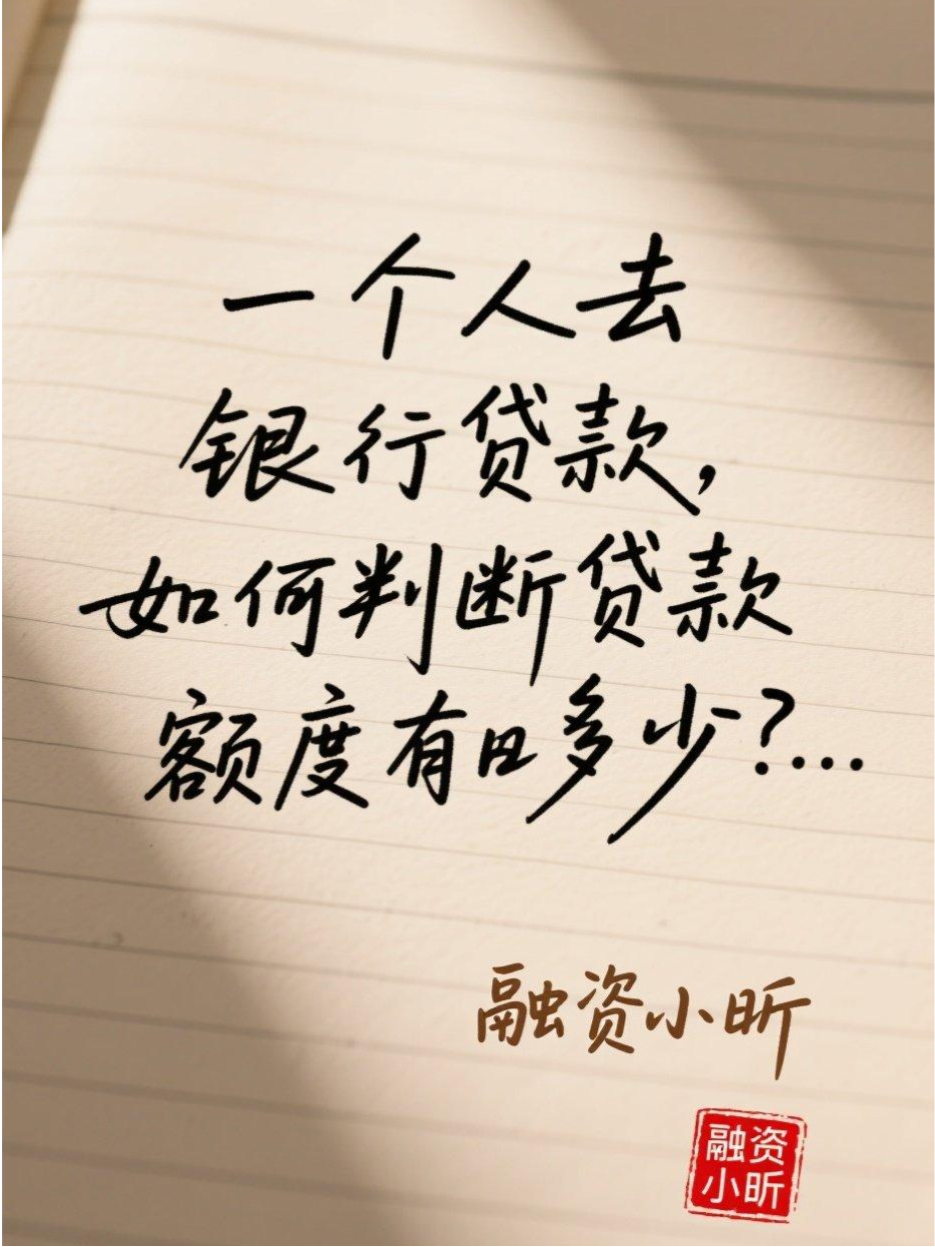 一个人去
银行贷款,
如何判断贷款
额度有日多少?....
融资小昕
融资
小昕